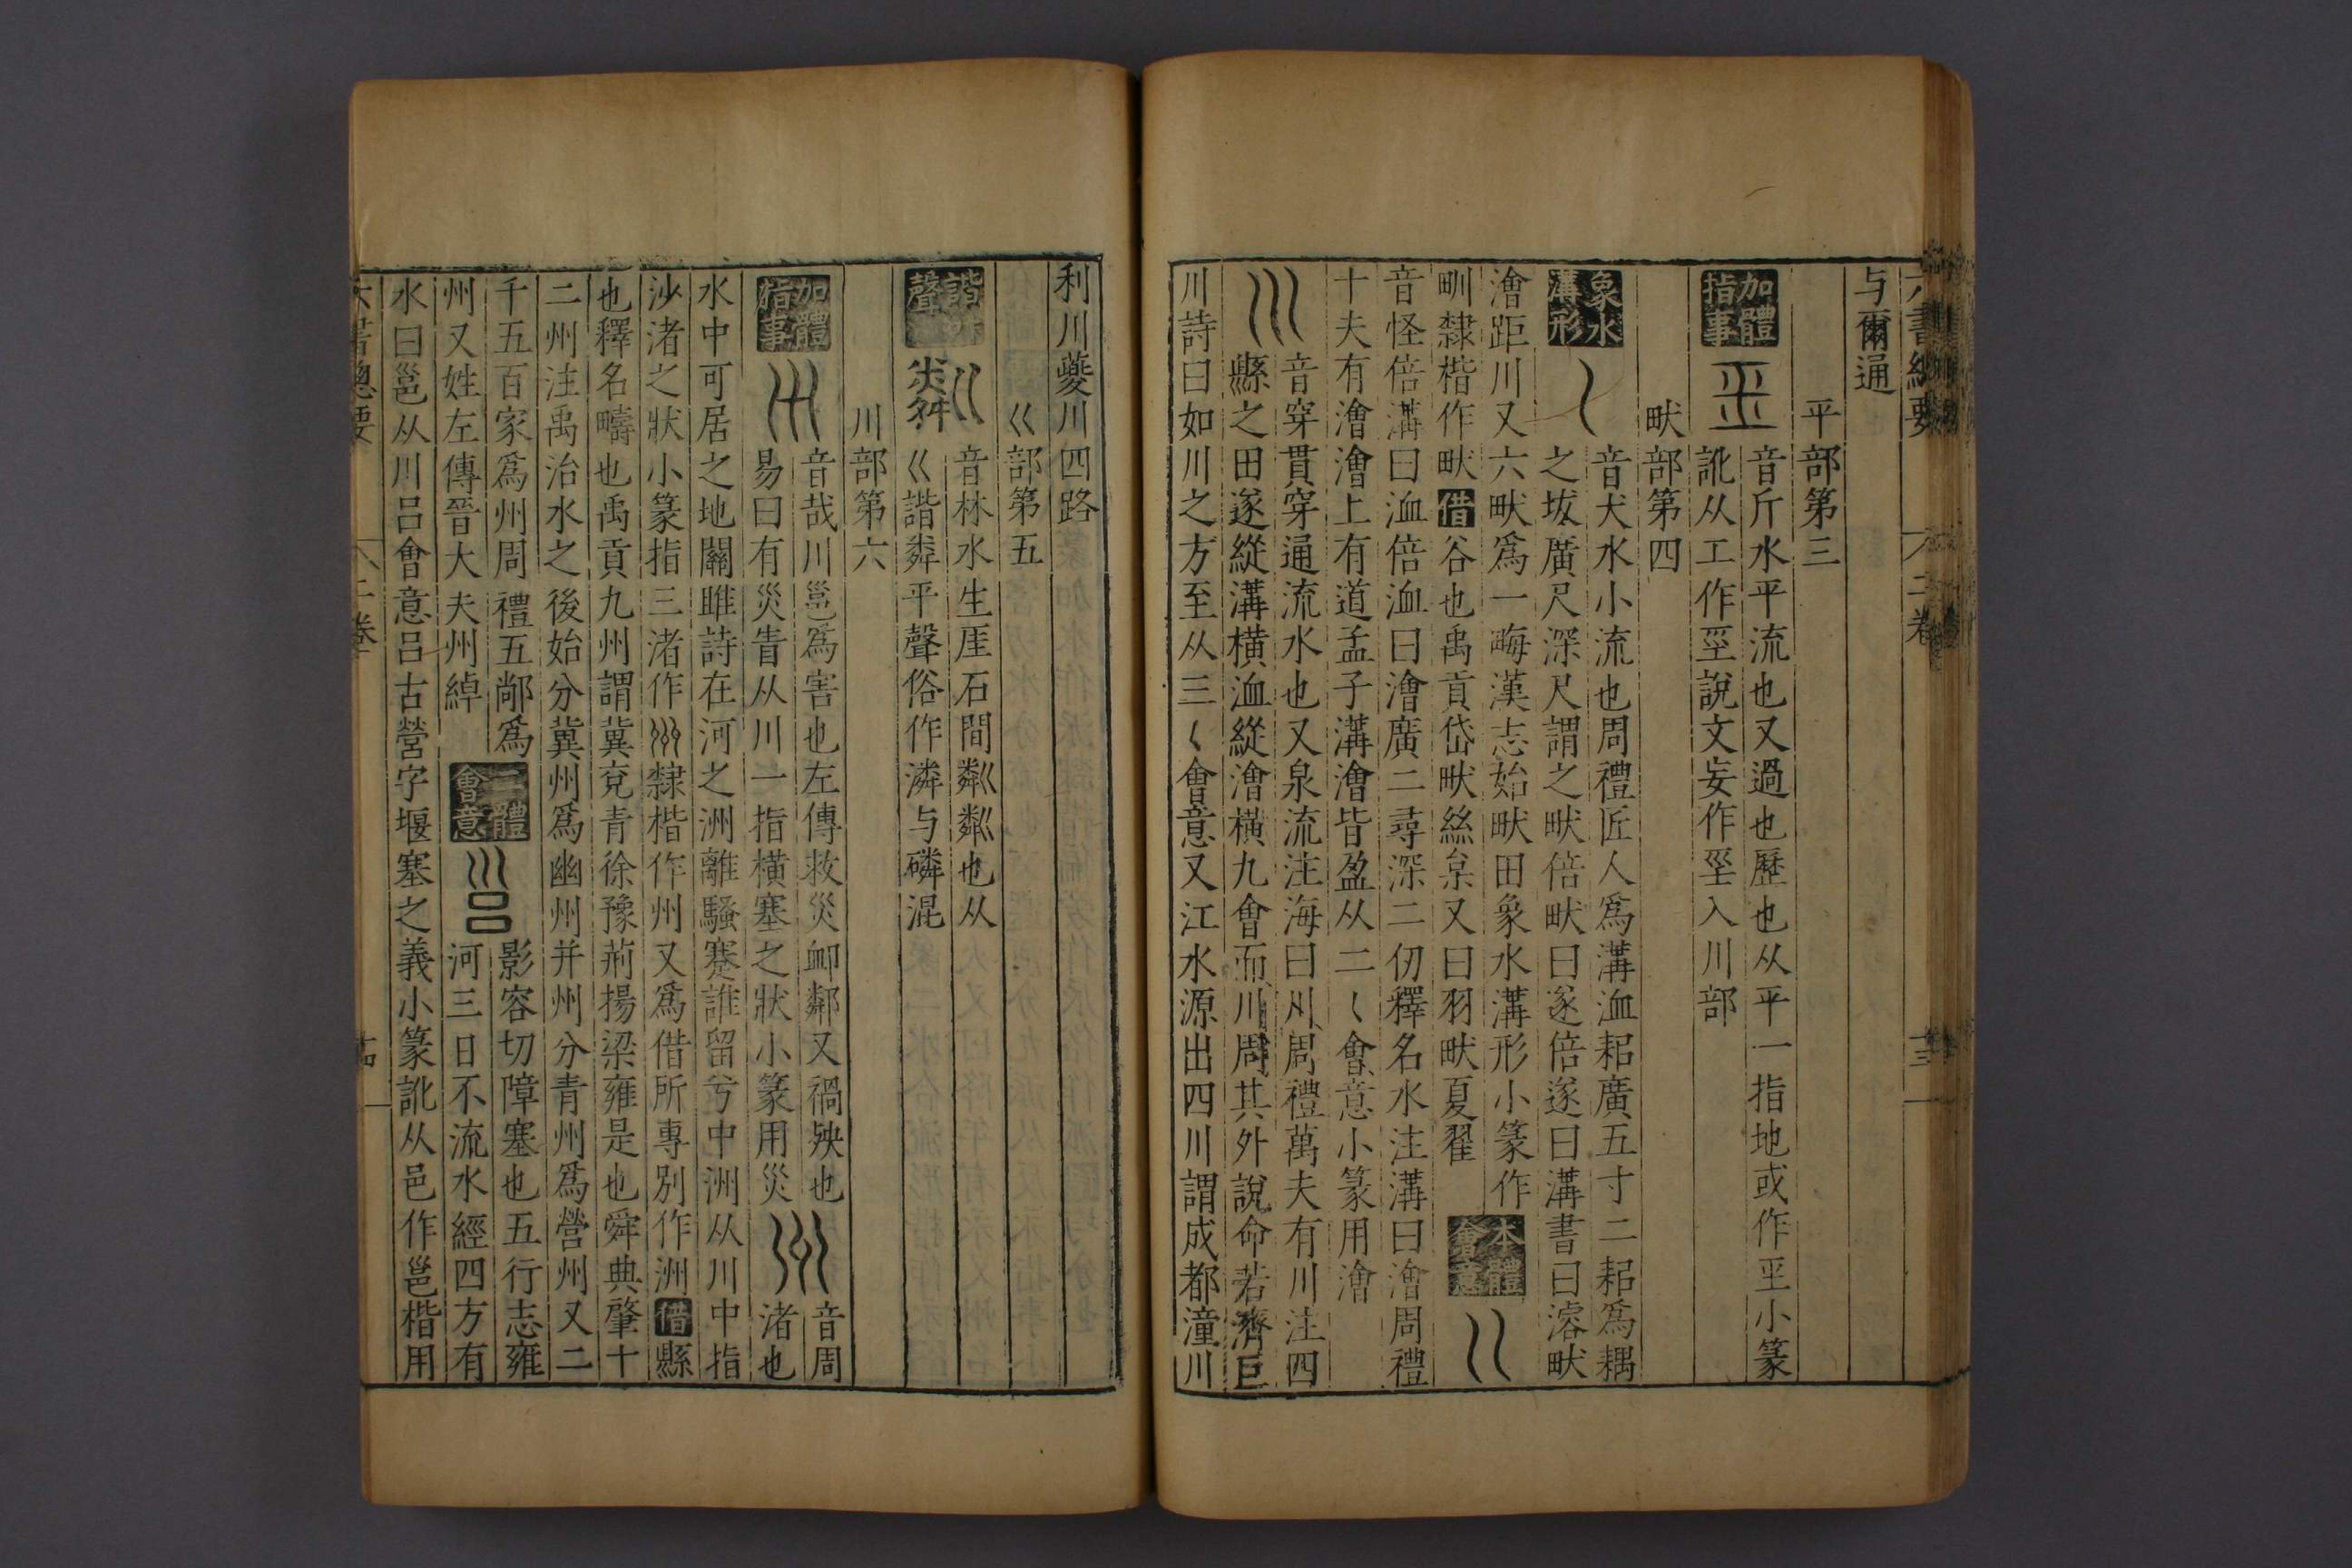 六書總要
二卷
十三
与爾通
平部第三
加體指事
音斤水平流也又過也歷也从平一指地或作坙小篆
訛从工作巠說文妄作坙入川部
畎部第四
象水溝形
音犬水小流也周禮匠人爲溝洫耜廣五寸二耜爲耦
之坺廣尺深尺謂之畎倍畎曰遂倍遂曰溝書曰濬畎
澮距川又六畎爲一畮漢志始畎田象水溝形小篆作
甽隸楷作畎借谷也禹貢岱畎絲枲又曰羽畎夏翟
本體會意
音怪倍溝曰洫倍洫曰澮廣二尋深二仞釋名水注溝曰澮周禮
十夫有澮澮上有道孟子溝澮皆盈从二〱會意小篆用澮
音穿貫穿通流水也又泉流注海曰川周禮萬夫有川注四
縣之田遂縱溝橫洫縱澮橫九會而川周其外說命若濟巨
川詩曰如川之方至从三〱會意又江水源出四川謂成都潼川
利川夔川四路
巜部第五
諧聲
音林水生厓石間粼粼也从
巜諧粦平聲俗作潾与磷混
川部第六
加體指事
音哉川邕爲害也左傳救災卹鄰又禍殃也
易曰有災眚从川一指橫塞之狀小篆用災
音周
渚也
水中可居之地關雎詩在河之洲離騷蹇誰留兮中洲从川中指
沙渚之狀小篆指三渚作隸楷作州又爲借所專別作洲借縣
也釋名疇也禹貢九州謂冀兗青徐豫荊揚梁雍是也舜典肇十
二州注禹治水之後始分冀州爲幽州并州分青州爲營州又二
千五百家爲州周禮五鄙爲
州又姓左傳晉大夫州綽
二體會意
影容切障塞也五行志雍
河三日不流水經四方有
水曰邕从川呂會意呂古營字堰塞之義小篆訛从邑作邕楷用
六書總要
二卷
十四